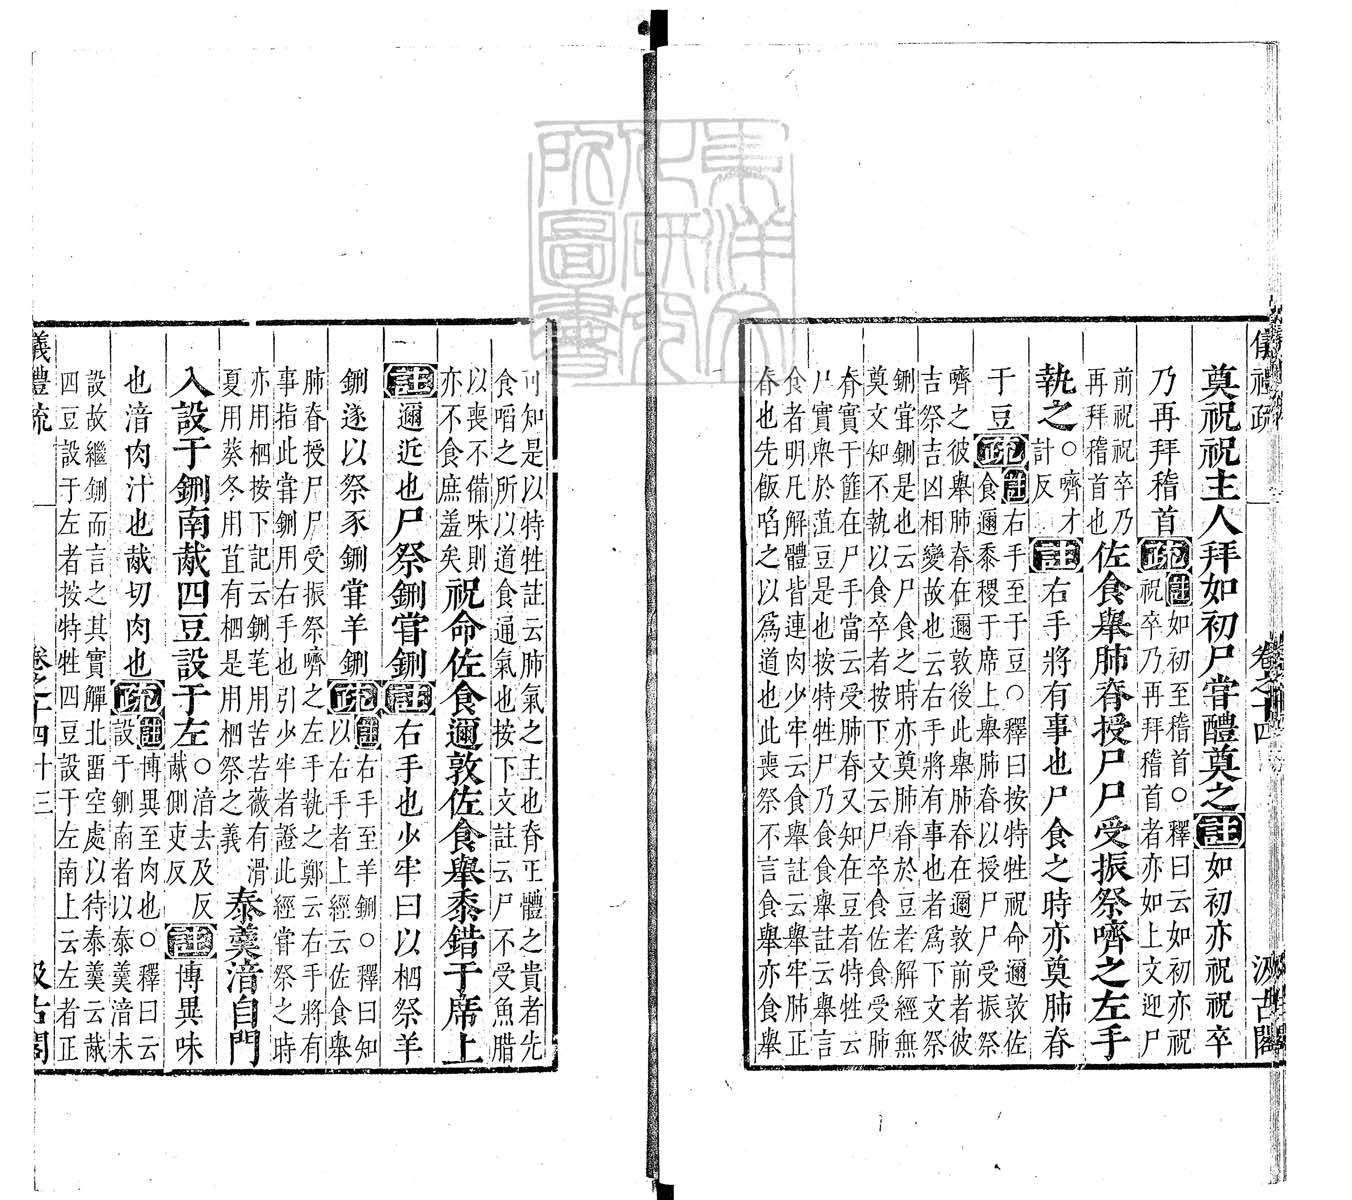 儀禮疏 卷之十四 汲古閣
奠祝祝主人拜如初尸甞醴奠之註如初亦祝祝卒
乃再拜稽首疏註如初至稽首○釋曰云如初亦祝
祝卒乃再拜稽首者亦如上文迎尸
前祝祝卒乃
再拜稽首也
佐食舉肺脊授尸尸受振祭嚌之左手
執之○嚌才
計反
註右手將有事也尸食之時亦奠肺脊
于豆疏註右手至于豆○釋曰按特牲祝命邇敦佐
食邇黍稷于席上舉肺脊以授尸尸受振祭
嚌之彼舉肺脊在邇敦後此舉肺脊在邇敦前者彼
吉祭吉凶相變故也云右手將有事也者爲下文祭
鉶甞鉶是也云尸食之時亦奠肺脊於豆者解經無
奠文知不執以食卒者按下文云尸卒食佐食受肺
脊實于篚在尸手當云受肺脊又知在豆者特牲云
尸實舉於菹豆是也按特牲尸乃食食舉註云舉言
食者明凡解體皆連肉少牢云食舉註云舉牢肺正
脊也先飯啗之以爲道也此喪祭不言食舉亦食舉
可知是以特牲註云肺氣之主也脊正體之貴者先
食啗之所以道食通氣也按下文註云尸不受魚腊
以喪不備味則
亦不食庶羞矣
祝命佐食邇敦佐食舉黍錯于席上
註邇近也尸祭鉶甞鉶註右手也少牢曰以柶祭羊
鉶遂以祭豕鉶甞羊鉶疏註右手至羊鉶○釋曰知
以右手者上經云佐食舉
肺脊授尸尸受振祭嚌之左手執之鄭云右手將有
事指此甞鉶用右手也引少牢者證此經甞祭之時
亦用柶按下記云鉶芼用苦苦薇有滑
夏用葵冬用荁有柶是用柶祭之義
泰羹湆自門
入設于鉶南胾四豆設于左○湆去及反
胾側吏反
註博異味
也湆肉汁也胾切肉也疏註博異至肉也○釋曰云
設于鉶南者以泰羹湆未
設故繼鉶而言之其實觶北畱空處以待泰羹云胾
四豆設于左者按特牲四豆設于左南上云左者正
儀禮疏 卷之十四 十三 汲古閣
東洋文化研究所圖書